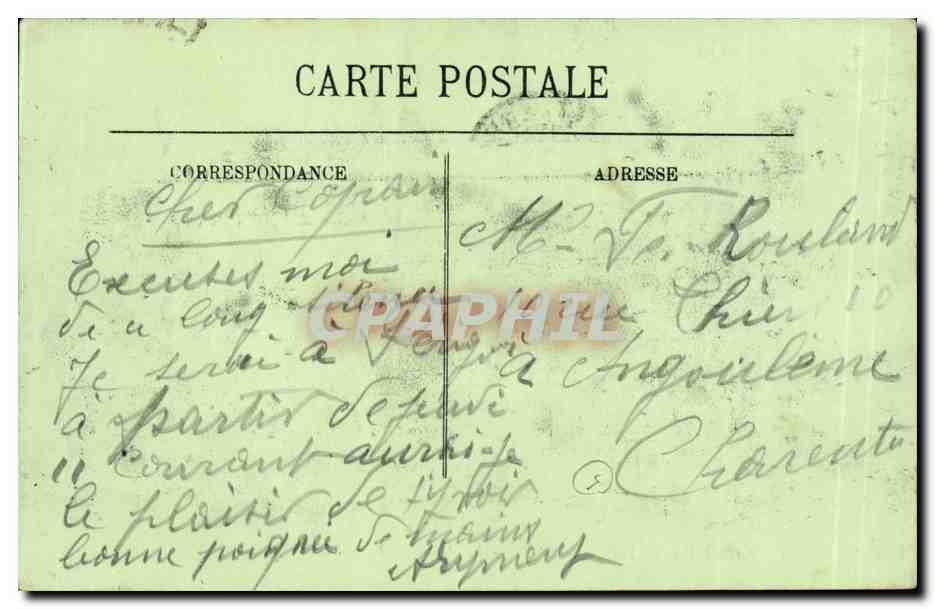 CARTE POSTALE
CORRESPONDANCE
Cher Copain
Excuses moi
de u long silence
Je serai à
à partir de jeudi
11 courant aurai-je
le plaisir de t'y voir
bonne poignée de mains
ADRESSE
Mr Rouland
rue
à Angoulême
Charente
CPAPHIL